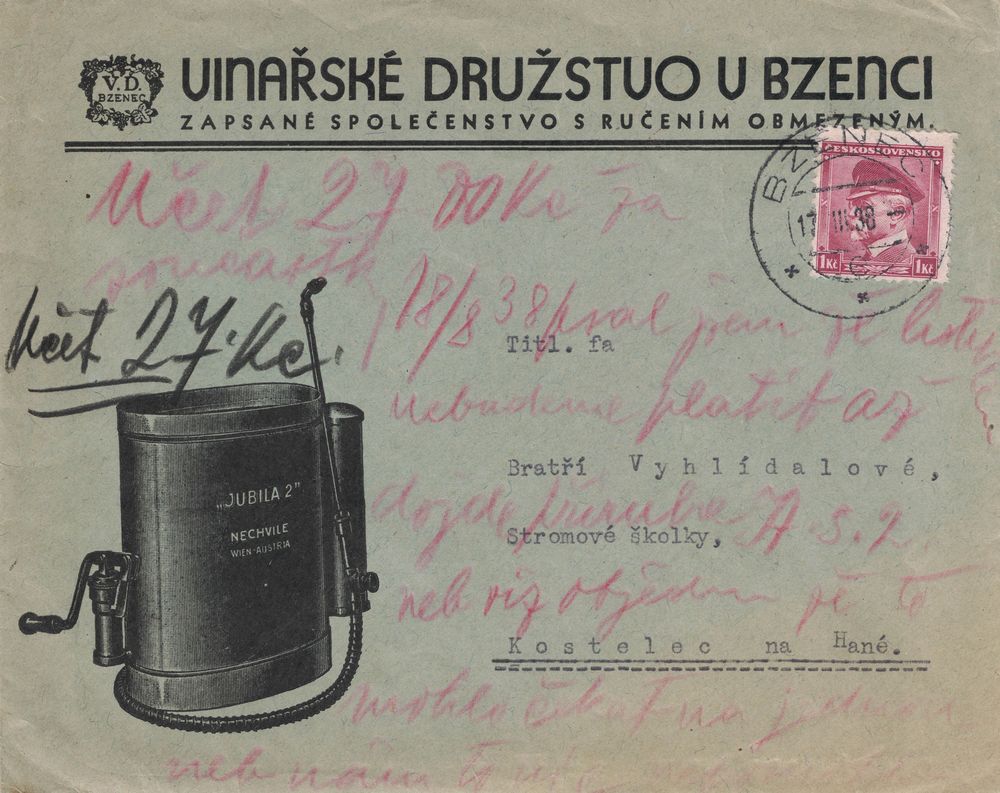 V. D.
BZENEC
VINAŘSKÉ DRUŽSTVO V BZENCI
ZAPSANÉ SPOLEČENSTVO S RUČENÍM OBMEZENÝM.
BZENEC
17 III.38
ČESKOSLOVENSKO
1 Kč 1 Kč
Účet 27 Kč za
18/8 38 psal jsem že
Účet 27. Kč.
Titl. fa
nebudeme platit až
Bratří Vyhlídalové,
"JUBILA 2"
NECHVILE
WIEN-AUSTRIA
dojde A.S.2.
Stromové školky,
neb viz objednu že to
Kostelec na Hané.
mohlo čekat na
neb nám to